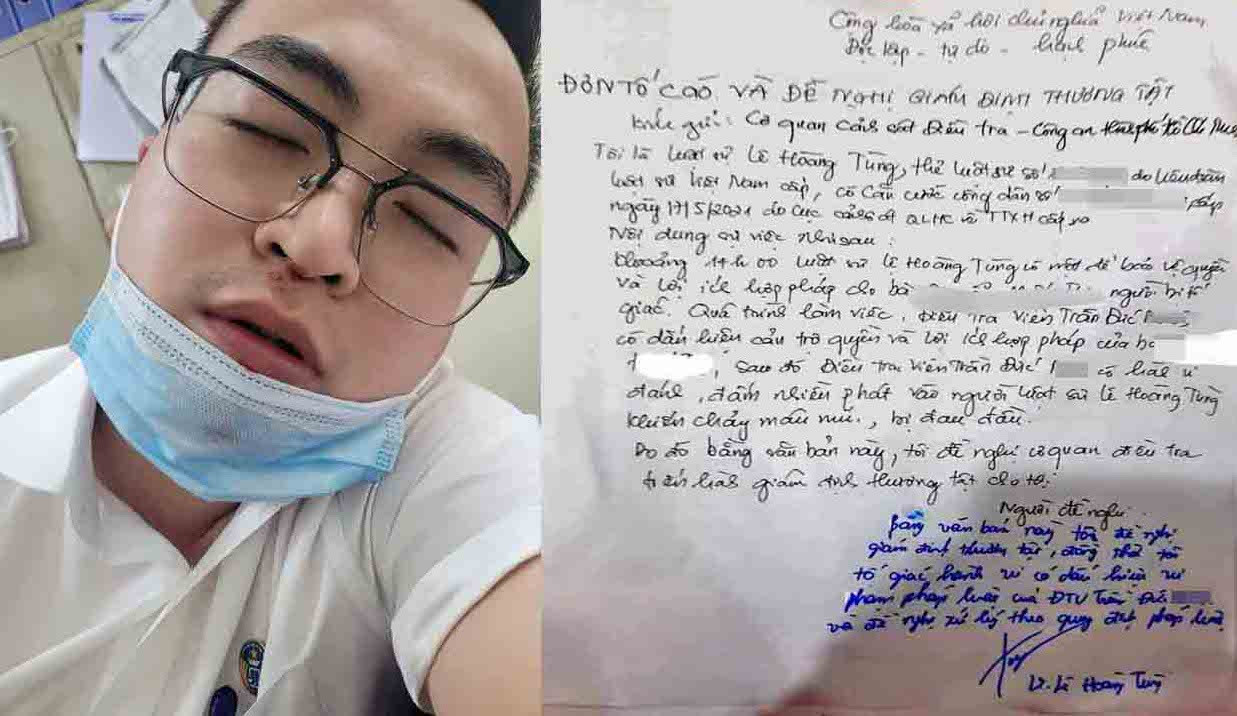 Cộng hòa xã hội chủ nghĩa Việt Nam
Độc lập - tự do - hạnh phúc
ĐƠN TỐ CÁO VÀ ĐỀ NGHỊ GIÁM ĐỊNH THƯƠNG TẬT
Kính gửi: Cơ quan cảnh sát điều tra - Công an thành phố Hồ Chí Minh
Tôi là luật sư Lê Hoàng Tùng, thẻ luật sư số do Liên đoàn
luật sư Việt Nam cấp, có căn cước công dân số cấp
ngày 17/5/2021 do cục cảnh sát QLHC về TTXH cấp
Nội dung sự việc như sau:
Khoảng 14h00 luật sư Lê Hoàng Tùng có mặt để bảo vệ quyền
và lợi ích hợp pháp cho bà người bị tố
giác. Quá trình làm việc, Điều tra viên Trần Đức
có dấu hiệu cản trở quyền và lợi ích hợp pháp của bà
, sau đó Điều tra viên Trần Đức có hành vi
đánh, đấm nhiều phát vào người luật sư Lê Hoàng Tùng
khiến chảy máu mũi, bị đau đầu.
Do đó bằng văn bản này, tôi đề nghị cơ quan điều tra
tiến hành giám định thương tật cho tôi.
Người đề nghị
Bằng văn bản này tôi đề nghị
giám định thương tật, đồng thời tôi
tố giác hành vi có dấu hiệu vi
phạm pháp luật của ĐTV Trần Đức
và đề nghị xử lý theo quy định pháp luật
LS. Lê Hoàng Tùng